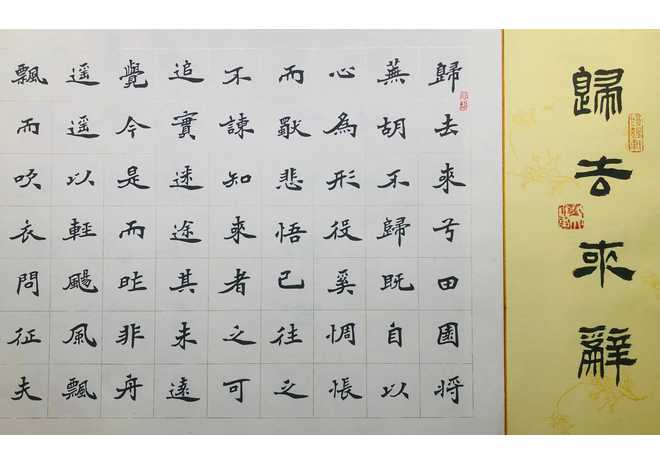 歸去來辭
歸去來兮田園將
蕪胡不歸既自以
心為形役奚惆悵
而悲悟已往之
不諫知來者之可
追實迷途其未遠
覺今是而昨非舟
遥遥以輕颺風飄
飄而吹衣問征夫